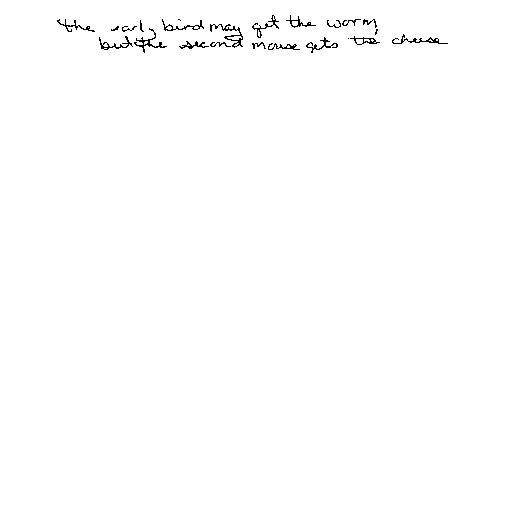 the early bird may get the worm,
but the second mouse gets the cheese